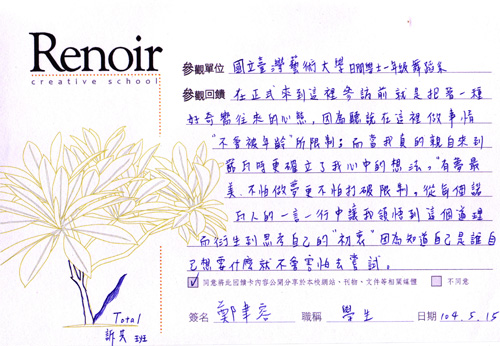 Renoir
creative school
參觀單位 國立臺灣藝術大學 日間學士一年級舞蹈系
參觀回饋 在正式來到這裡參訪前就是抱著一種
好奇嚮往來的心態，因為聽說在這裡做事情
"不會被年齡"所限制；而當我真的親自來到
雷瓦時更確立了我心中的想法。"有夢最
美，不怕做夢更不怕打破限制。從每個雷
瓦人的一言一行中讓我領悟到這個道理
而衍生到思考自己的"初衷"因為知道自己是誰自
己想要什麼就不會害怕去嘗試。
同意將此回饋卡內容公開分享於本校網站、刊物、文件等相關媒體 不同意
簽名 鄭聿容 職稱 學生 日期 104.5.15
Total
班